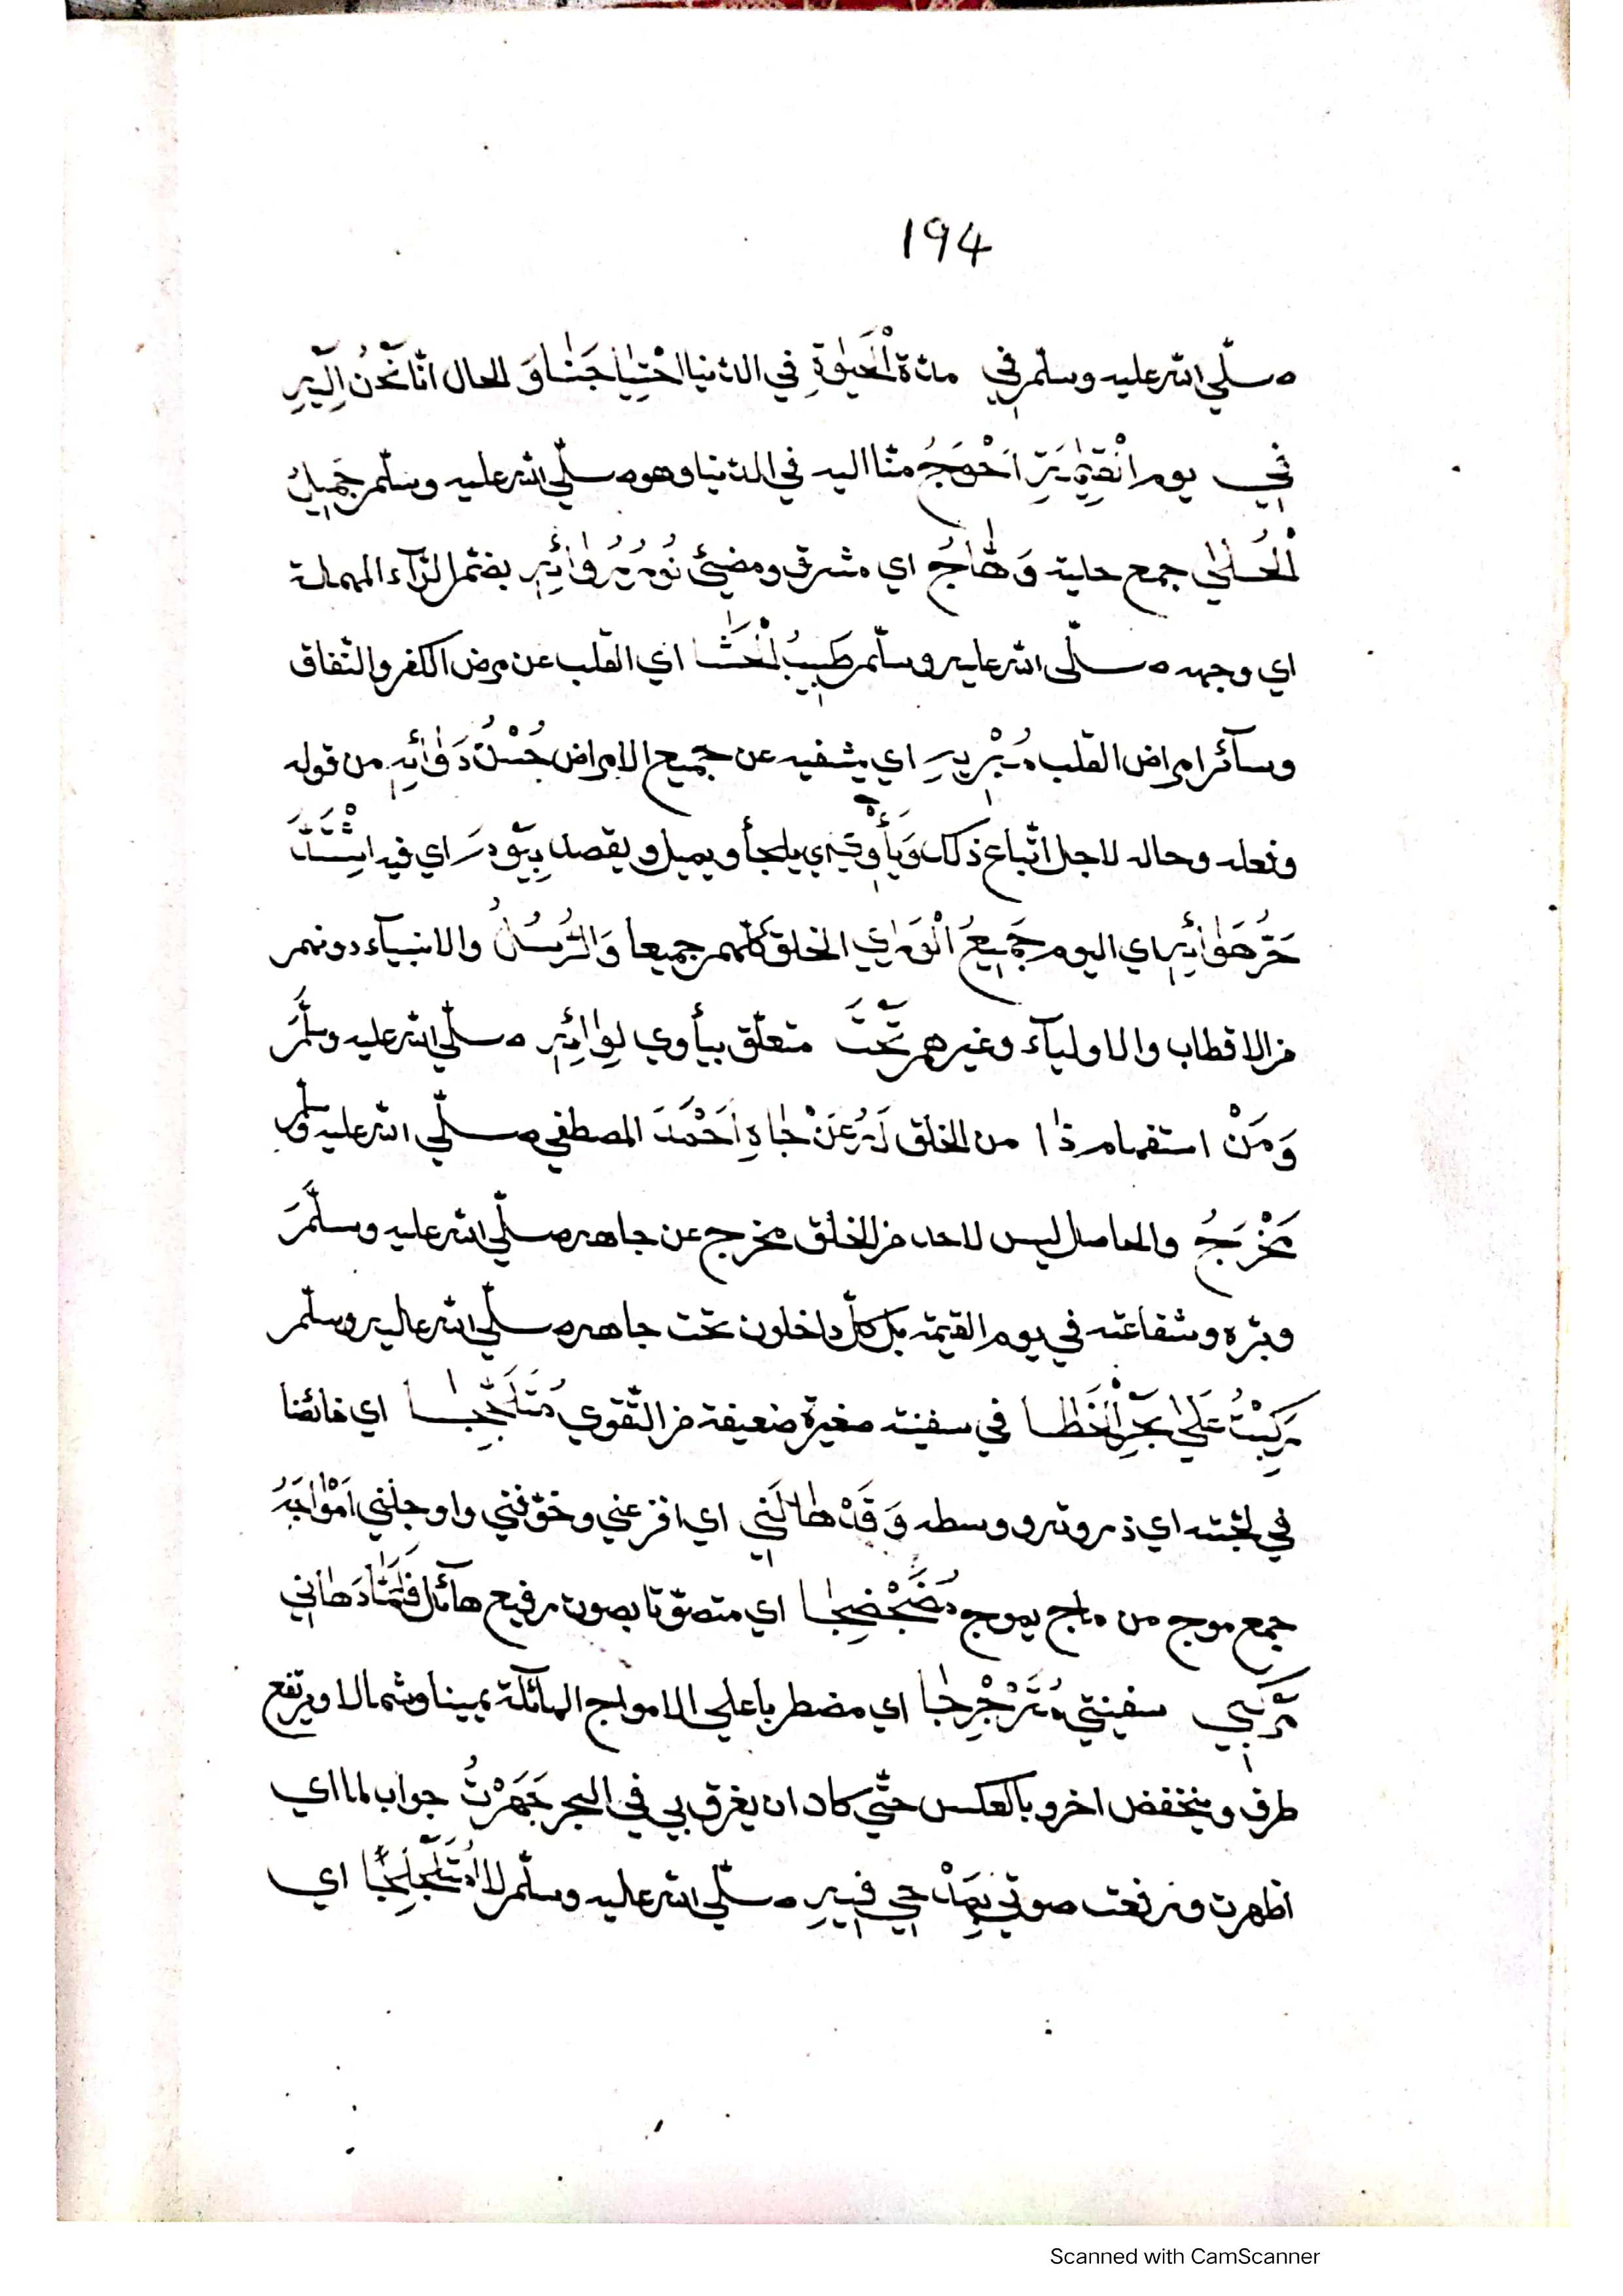 194
صلّي الله عليه وسلّم في مدّة الْحَيٰوةِ فِي الدّنيا احْتِيٰاجُنٰا وَ الحال انّا نَحْنُ اِلَيْهِ
فِي يوم الْقِيٰمَةِ اَحْوَجُ منّا اليه في الدّنيا وهو صلّي الله عليه وسلّم جَمِيلُ
الْحُلٰي جمع حلية وَهّٰاجُ اي مشرق ومضيئ نُورُ رُوٰائِهِ بضمّ الرّآء المهملة
اي وجهه صلّي الله عليه وسلّم طَبِيبُ الْحَشٰا اي القلب عن مرض الكفر والنّفاق
وسآئر امراض القلب مُبْرِيهِ اي يشفيه عن جميع الامراض حُسْنُ دَوٰائِهِ من قوله
وفعله وحاله لاجل اتّباع ذلك وَيَأْوِي اي يلجأ ويميل ويقصد بِيَوْمٍ اي فيه اشْتَدَّ
حَرُّ هَوٰائِهِ اي اليوم جَمِيعُ الْوَرٰي الخلق كلّهم جميعا وَالرُّسْلُ والانبيآء دونهم
من الاقطاب والاوليآء وغيرهم تَحْتَ متعلّق بيأوي لِوٰائِهِ صلّي الله عليه وسلَّمَ
وَمَنْ استفهام ذٰا من الخلق لَهُ عَنْ جٰاهِ اَحْمَدَ المصطفي صلّي الله عليه وسلّم
مَخْرَجُ والحاصل ليس لاحد من الخلق مخرج عن جاهه صلّي الله عليه وسلَّمَ
وبرّه وشفاعته في يوم القيمة بل كلّ داخلون تحت جاهه صلّي الله عليه وسلّم
رَكِبْتُ عَلٰي بَحْرِ الْخَطٰا في سفينة صغيرة ضعيفة من التّقوي مُتَلَجِّجٰا اي خائضا
في لجّته اي ذروته ووسطه وَقَدْ هٰالَنِي اي افزعني وخوّفني واوجلني اَمْوٰاجُهُ
جمع موج من ماج يموج مُضَجْضِجٰا اي متصوّتا بصوت رفيع هآئل فَلَمّٰا دَهٰانِي
مَرْكَبِي سفينتي مُتَرَجْرِجٰا اي مضطربا علي الامواج الهآئلة يمينا وشمالا ويرتفع
طرف وينخفض اخر وبالعكس حتّي كاد ان يغرق بي في البحر جَهَرْتُ جواب لما اي
اظهرت ورفعت صوتي بِمَدْحِي فِيهِ صلّي الله عليه وسلّم لا مُتَلَجْلِجًا اي
Scanned with CamScanner